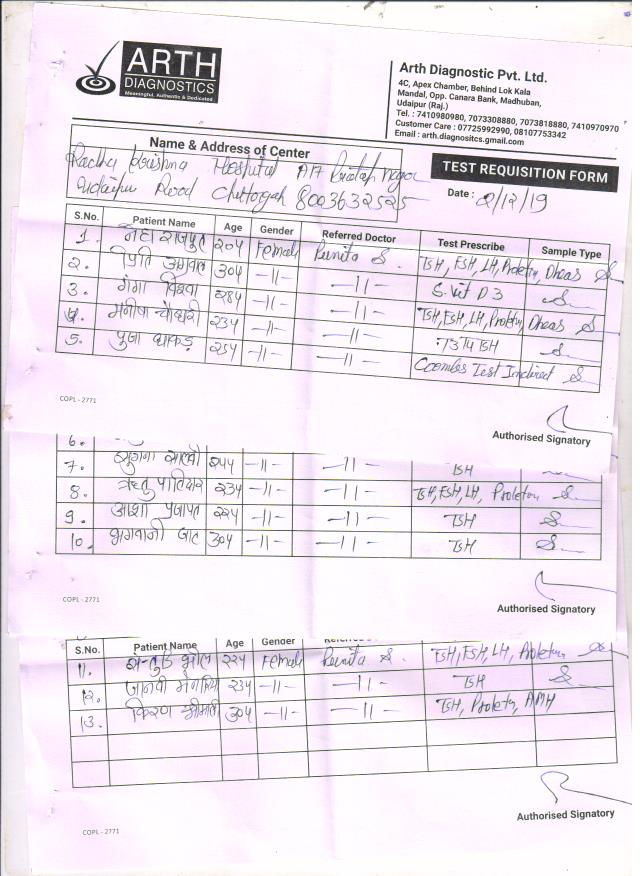 ARTH
DIAGNOSTICS
Meaningful, Authentic & Dedicated
Arth Diagnostic Pvt. Ltd.
4C, Apex Chamber, Behind Lok Kala
Mandal, Opp. Canara Bank, Madhuban,
Udaipur (Raj.)
Tel. : 7410980980, 7073308880, 7073818880, 7410970970
Customer Care : 07725992990, 08107753342
Email : arth.diagnositcs.gmail.com
Name & Address of Center
Radha Krishna Hospital A17 Pratap Nagar
Udaipur Road Chittorgah 8003632525
TEST REQUISITION FORM
Date : 2/12/19
S.No. Patient Name Age Gender Referred Doctor Test Prescribe Sample Type
1. नेहा राजपूत 20Y Female Punita S. TSH, FSH, LH, Proletin, Dheas S
2. अग्रवाल 30Y -11- -11- S. Vit D3 S
3. गंगा 28Y -11- -11- TSH, FSH, LH, Proletin, Dheas S
4. मनीषा चौधरी 23Y -11- -11- T3T4TSH S
5. पूजा धाकड़ 25Y -11- -11- Coombs Test Indirect S
COPL - 2771
Authorised Signatory
6.
7. 24Y -11- -11- TSH
8. 23Y -11- -11- TSH, FSH, LH, Proletin S
9. 22Y -11- -11- TSH S
10. जाट 30Y -11- -11- TSH S
COPL - 2771
Authorised Signatory
S.No. Patient Name Age Gender
11. 22Y Female Punita S. TSH, FSH, LH, Proletin S
12. जानवी 23Y -11- -11- TSH S
13. किरण 30Y -11- -11- TSH, Proletin, AMH
COPL - 2771
Authorised Signatory